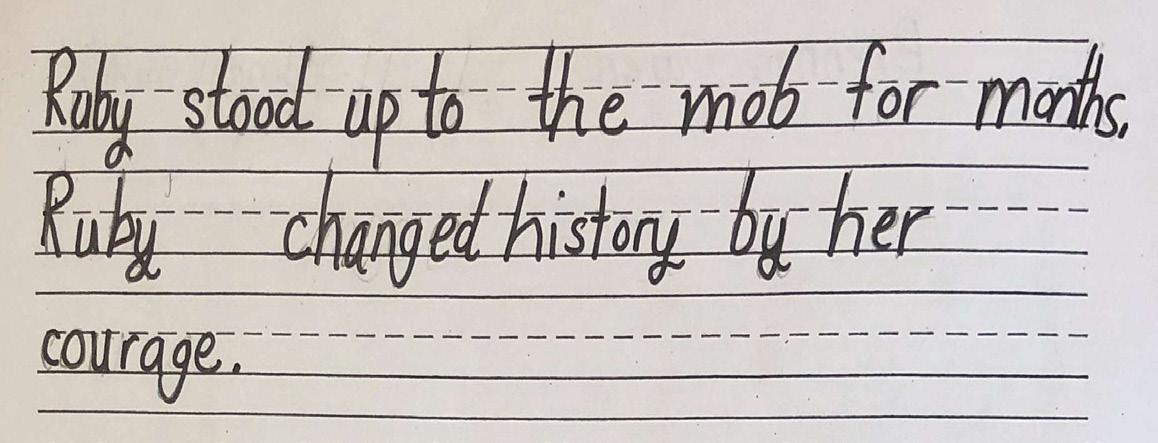 Ruby stood up to the mob for months.
Ruby changed history by her
courage.